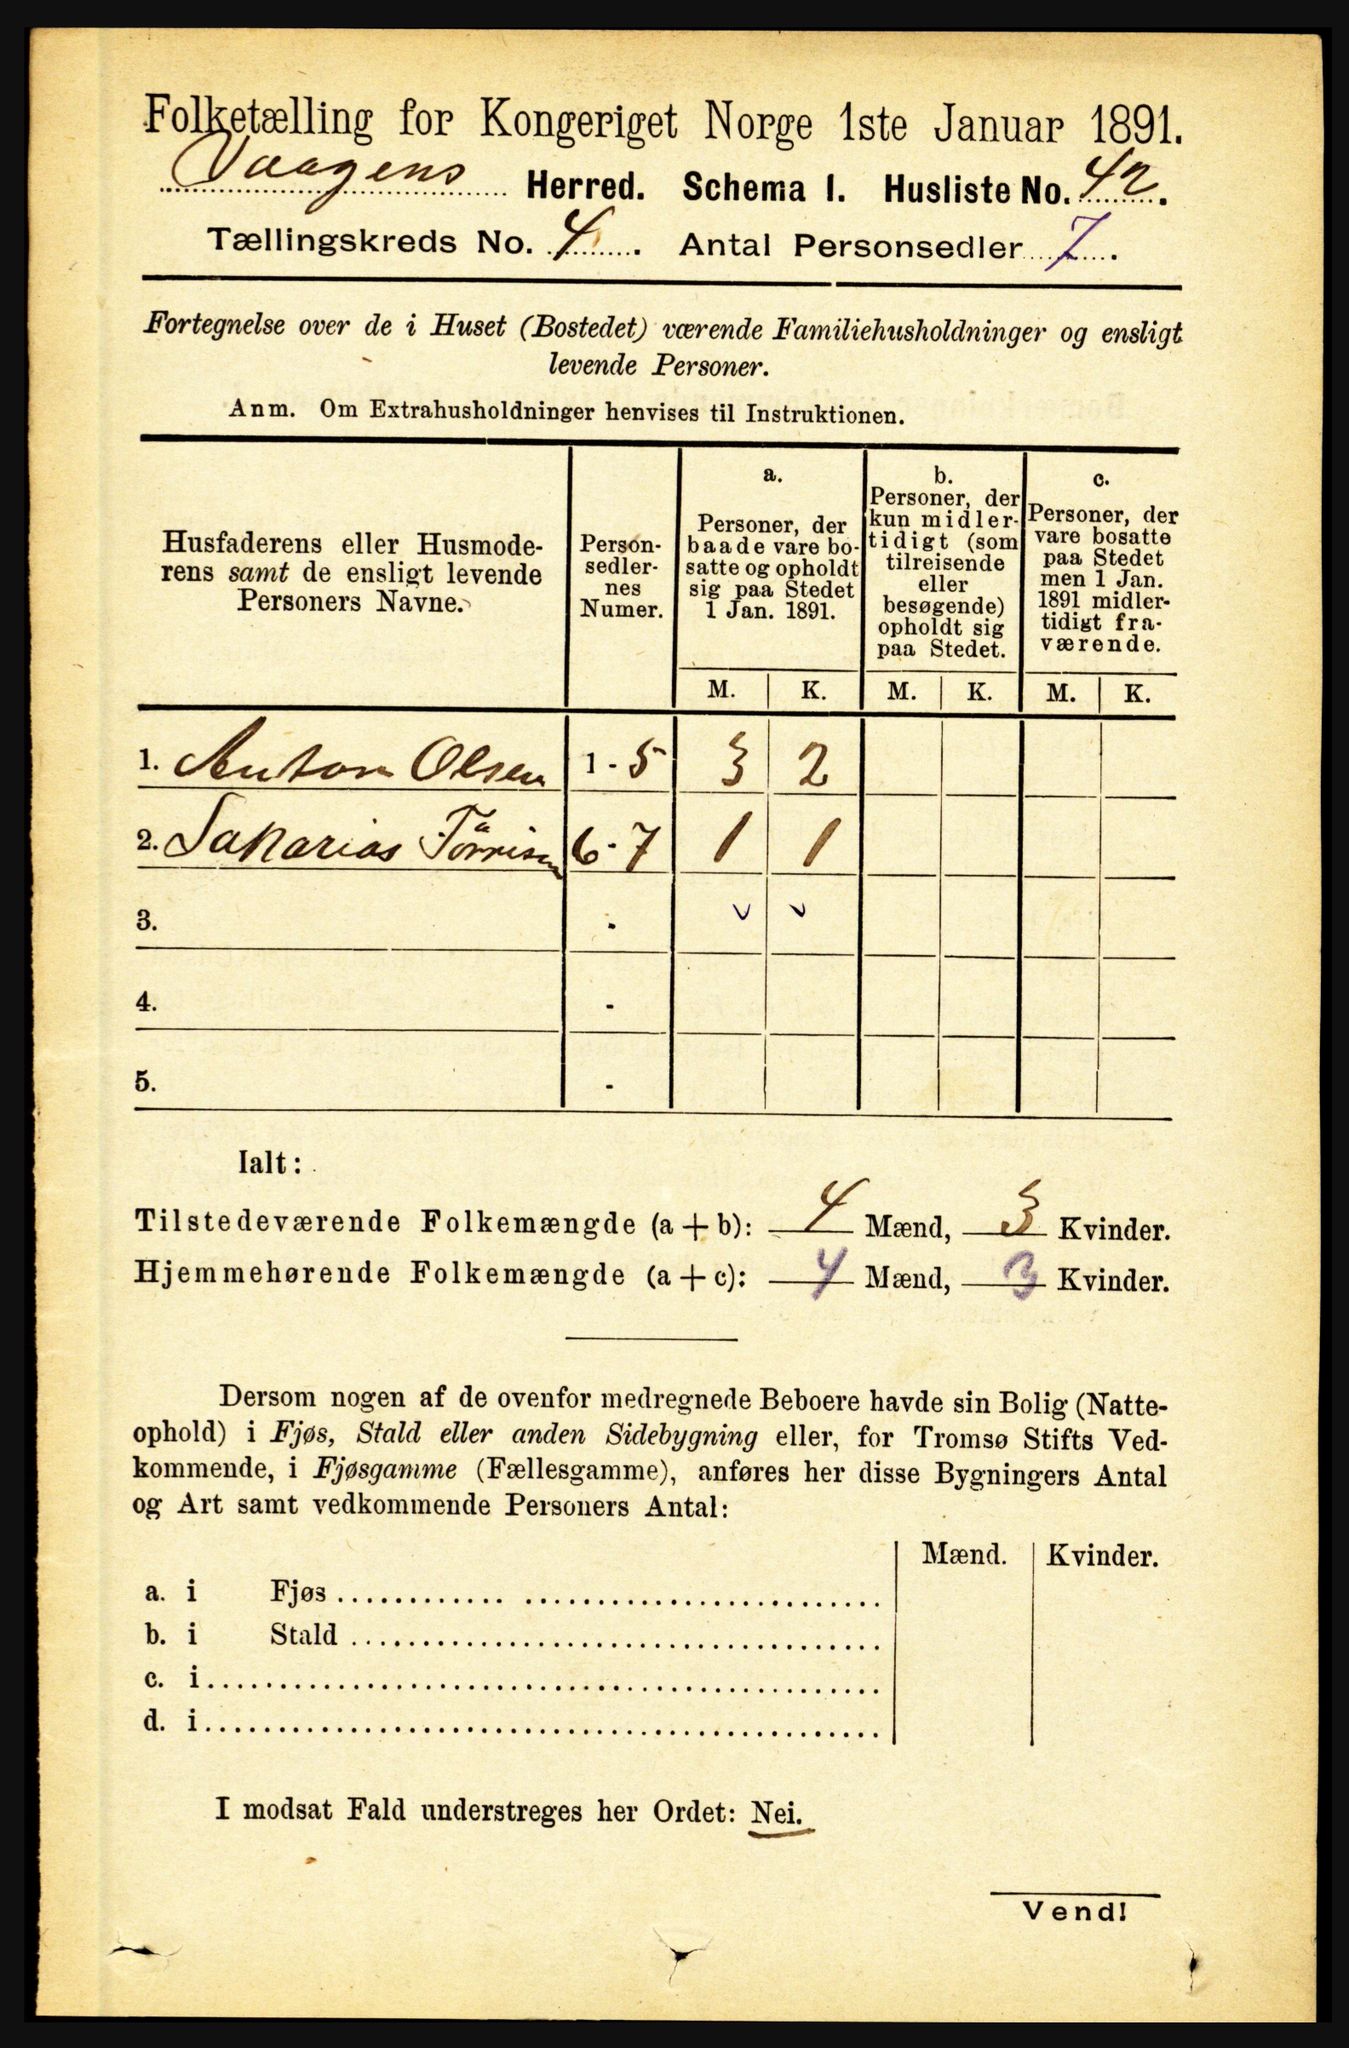 Folketælling for Kongeriget Norge 1ste Januar 1891.
Vaagens Herred. Schema I. Husliste No. 42.
Tællingskreds No. 4. Antal Personsedler 7.
Fortegnelse over de i Huset (Bostedet) værende Familiehusholdninger og ensligt
levende Personer.
Anm. Om Extrahusholdninger henvises til Instruktionen.
Husfaderens eller Husmode-
rens samt de ensligt levende
Personers Navne.
Person-
sedler-
nes
Numer.
a.
Personer, der
baade vare bo-
satte og opholdt
sig paa Stedet
1 Jan. 1891.
b.
Personer, der
kun midler-
tidigt (som
tilreisende
eller
besøgende)
opholdt sig
paa Stedet.
c.
Personer, der
vare bosatte
paa Stedet
men 1 Jan.
1891 midler-
tidigt fra-
værende.
M. K. M. K. M. K.
1. Anton Olsen 1 - 5 3 2
2. Sakarias Tørrisen 6 - 7 1 1
3. -
4. -
5. -
Ialt:
Tilstedeværende Folkemængde (a + b): 4 Mænd, 3 Kvinder.
Hjemmehørende Folkemængde (a + c): 4 Mænd, 3 Kvinder.
Dersom nogen af de ovenfor medregnede Beboere havde sin Bolig (Natte-
ophold) i Fjøs, Stald eller anden Sidebygning eller, for Tromsø Stifts Ved-
kommende, i Fjøsgamme (Fællesgamme), anføres her disse Bygningers Antal
og Art samt vedkommende Personers Antal:
Mænd. Kvinder.
a. i Fjøs
b. i Stald
c. i
d. i
I modsat Fald understreges her Ordet: Nei.
Vend!